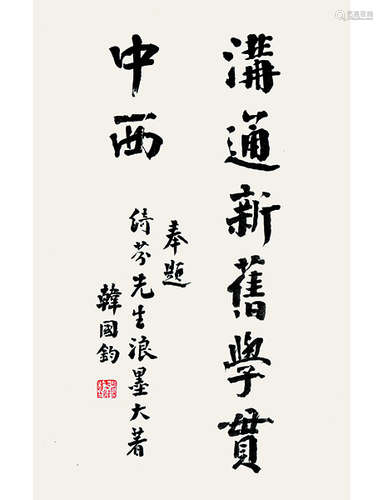 溝通新舊學貫
中西
奉題
綺芬先生浪墨大著
韓國鈞